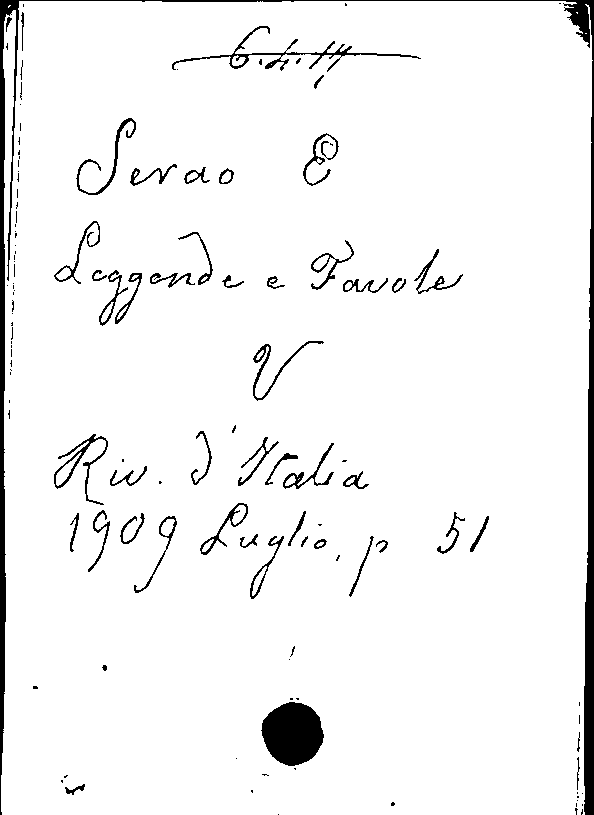 6.4.17
Serao E
Leggende e Favole
V
Riv. d'Italia
1909 Luglio, p 51